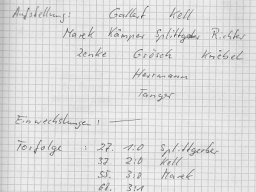 Aufstellung: Gallert Kell
Marek Kämper Splittgerber Richter
Zenke Grösch Kniebel
Herrmann
Tanger
Einwechslungen: —
Torfolge: 27. 1:0 Splittgerber
32. 2:0 Kell
55. 3:0 Marek
68. 3:1